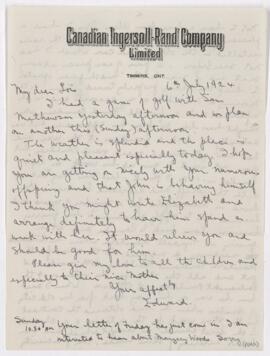 Canadian Ingersoll-Rand Company
Limited
TIMMINS, ONT.
6th July, 1924
My dear
I had a game of golf with
Mathewson yesterday afternoon and we plan
on another this (Sunday) afternoon.
The weather is splendid and the place is
quiet and pleasant especially today. I hope
you are getting on nicely with your numerous
offspring and that John is behaving himself
I think you might write Elizabeth and
arrange definitely to have him spend a
week with her. It would relieve you and
should be good for him.
Please give my love to all the children and
especially to their nice Mother
Your affect
Edward.
Sunday
10.30 am Your letter of Friday has just come in. I am
interested to hear about Margery Woods